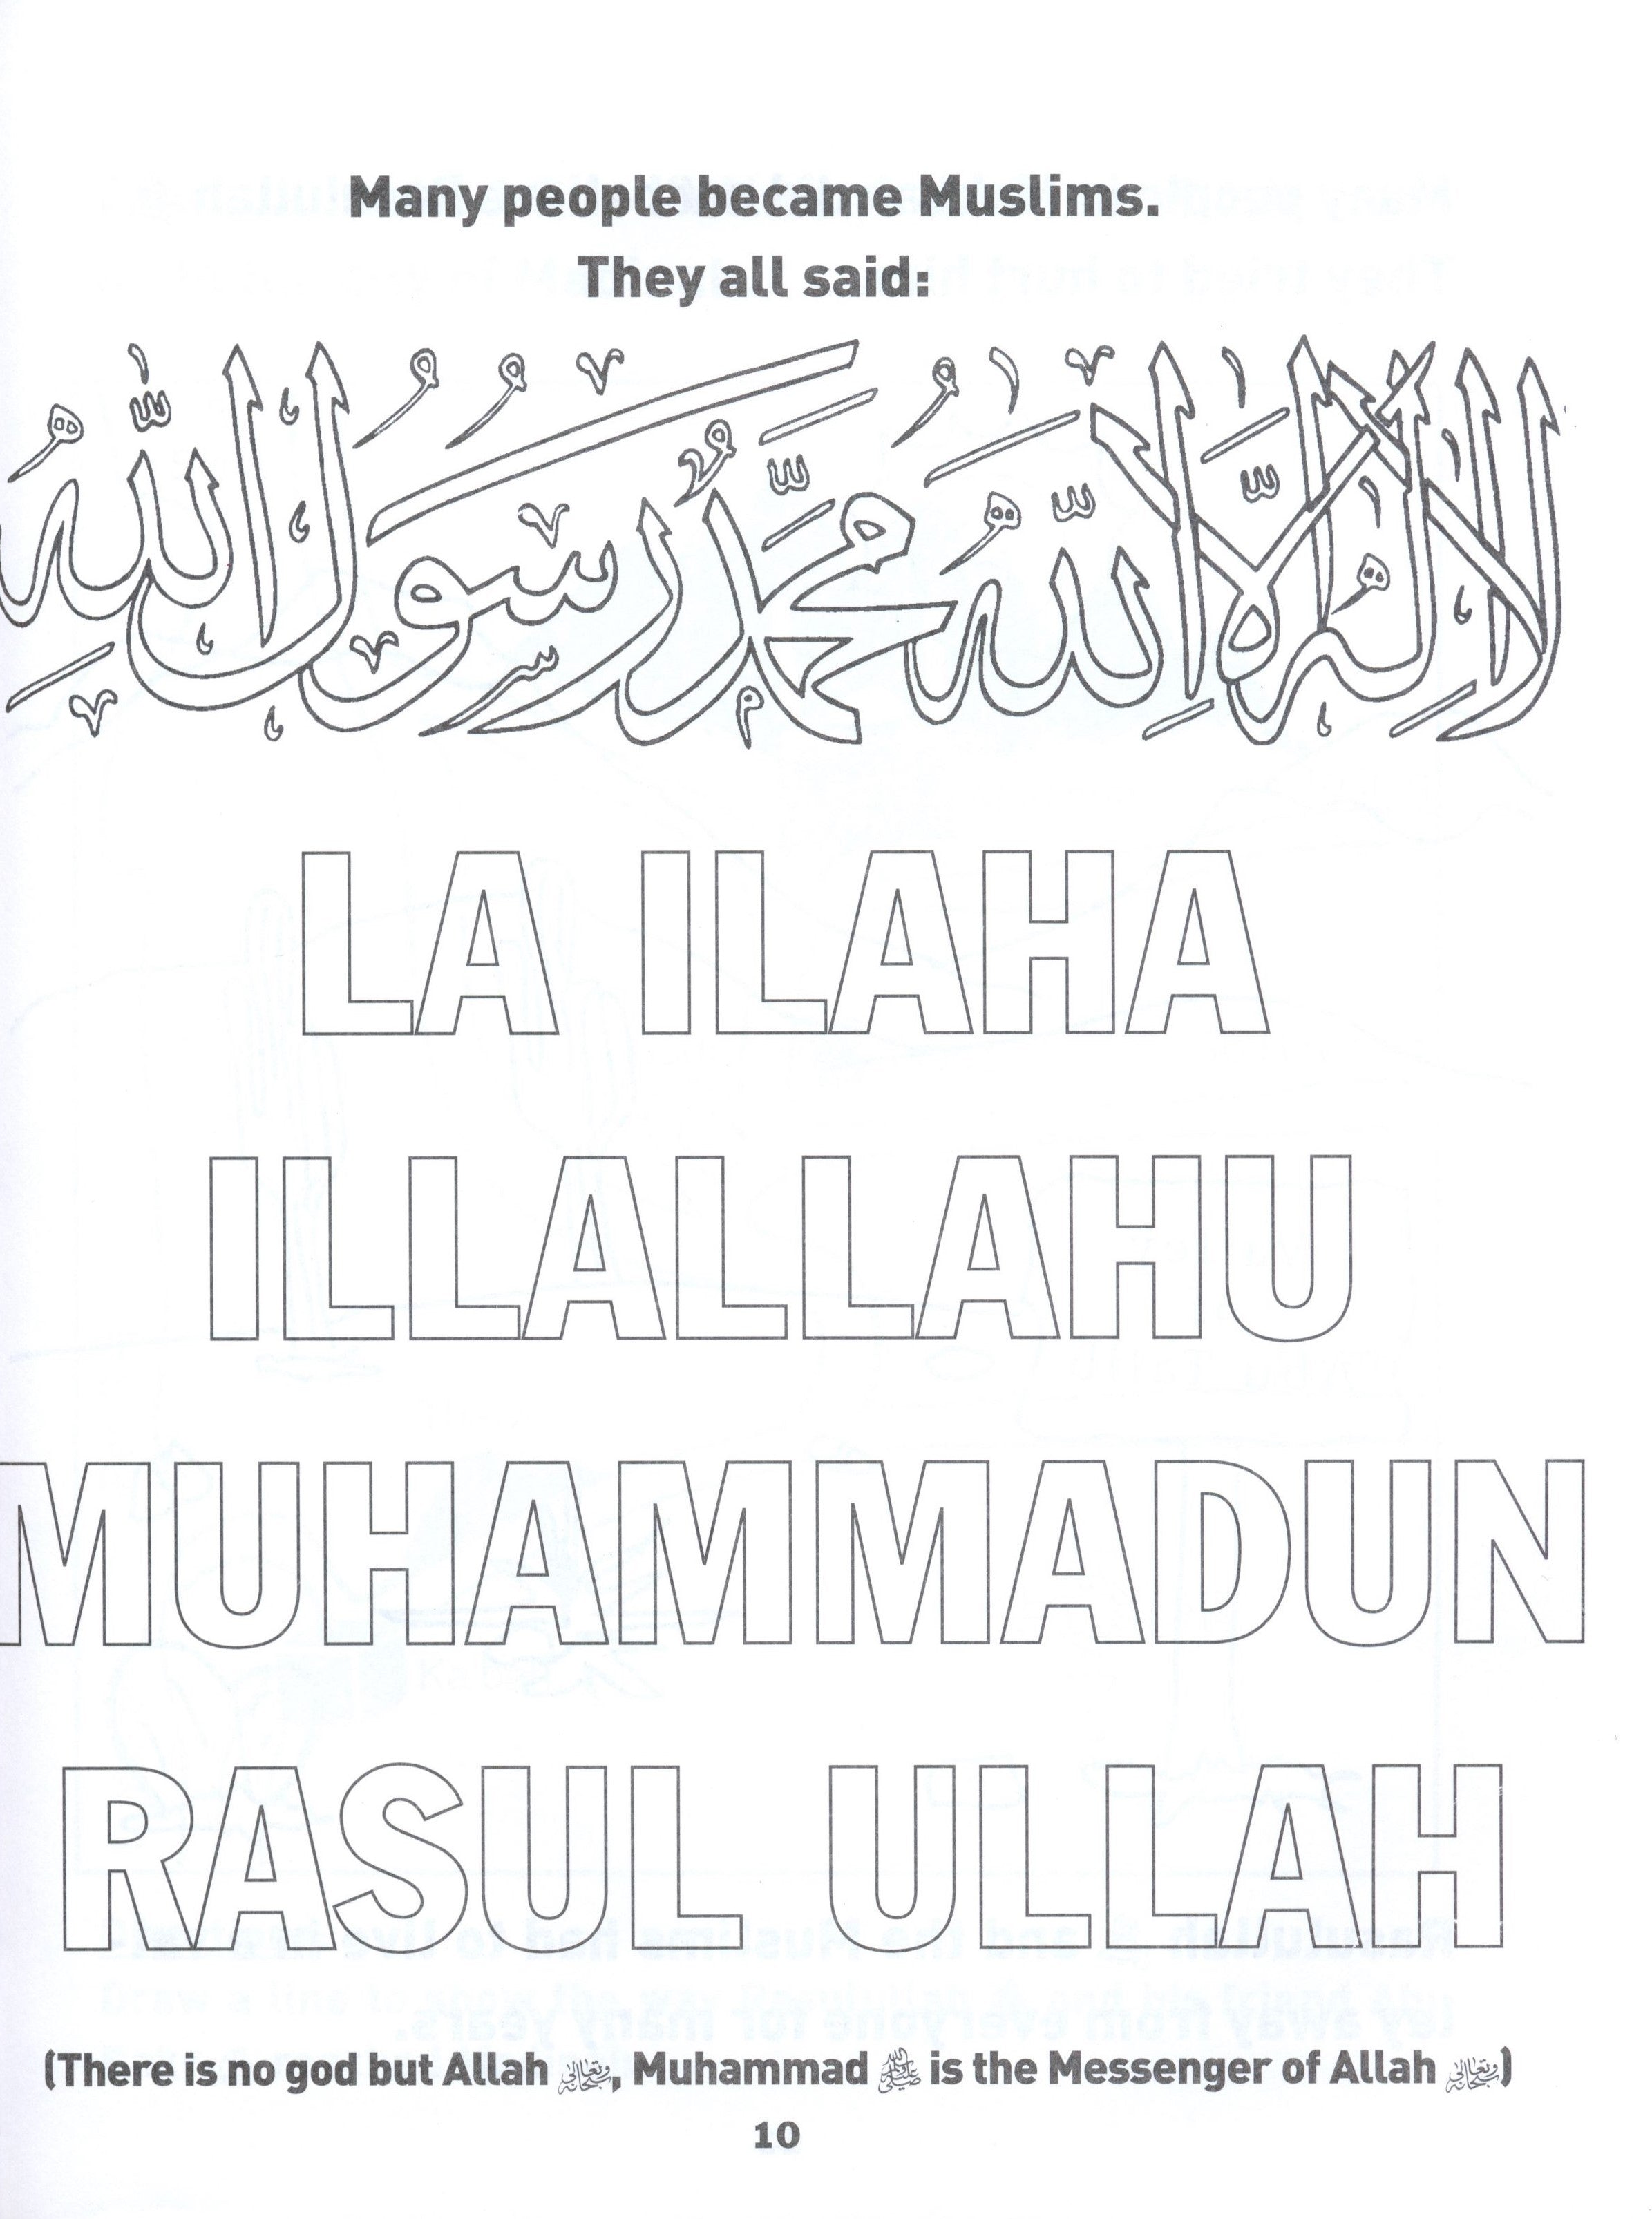 Many people became Muslims.
They all said:
لَا إِلٰهَ إِلَّا اللّٰهُ مُحَمَّدٌ رَسُولُ اللّٰهِ
LA ILAHA
ILLALLAHU
MUHAMMADUN
RASUL ULLAH
(There is no god but Allah ﷾, Muhammad ﷺ is the Messenger of Allah ﷾)
10